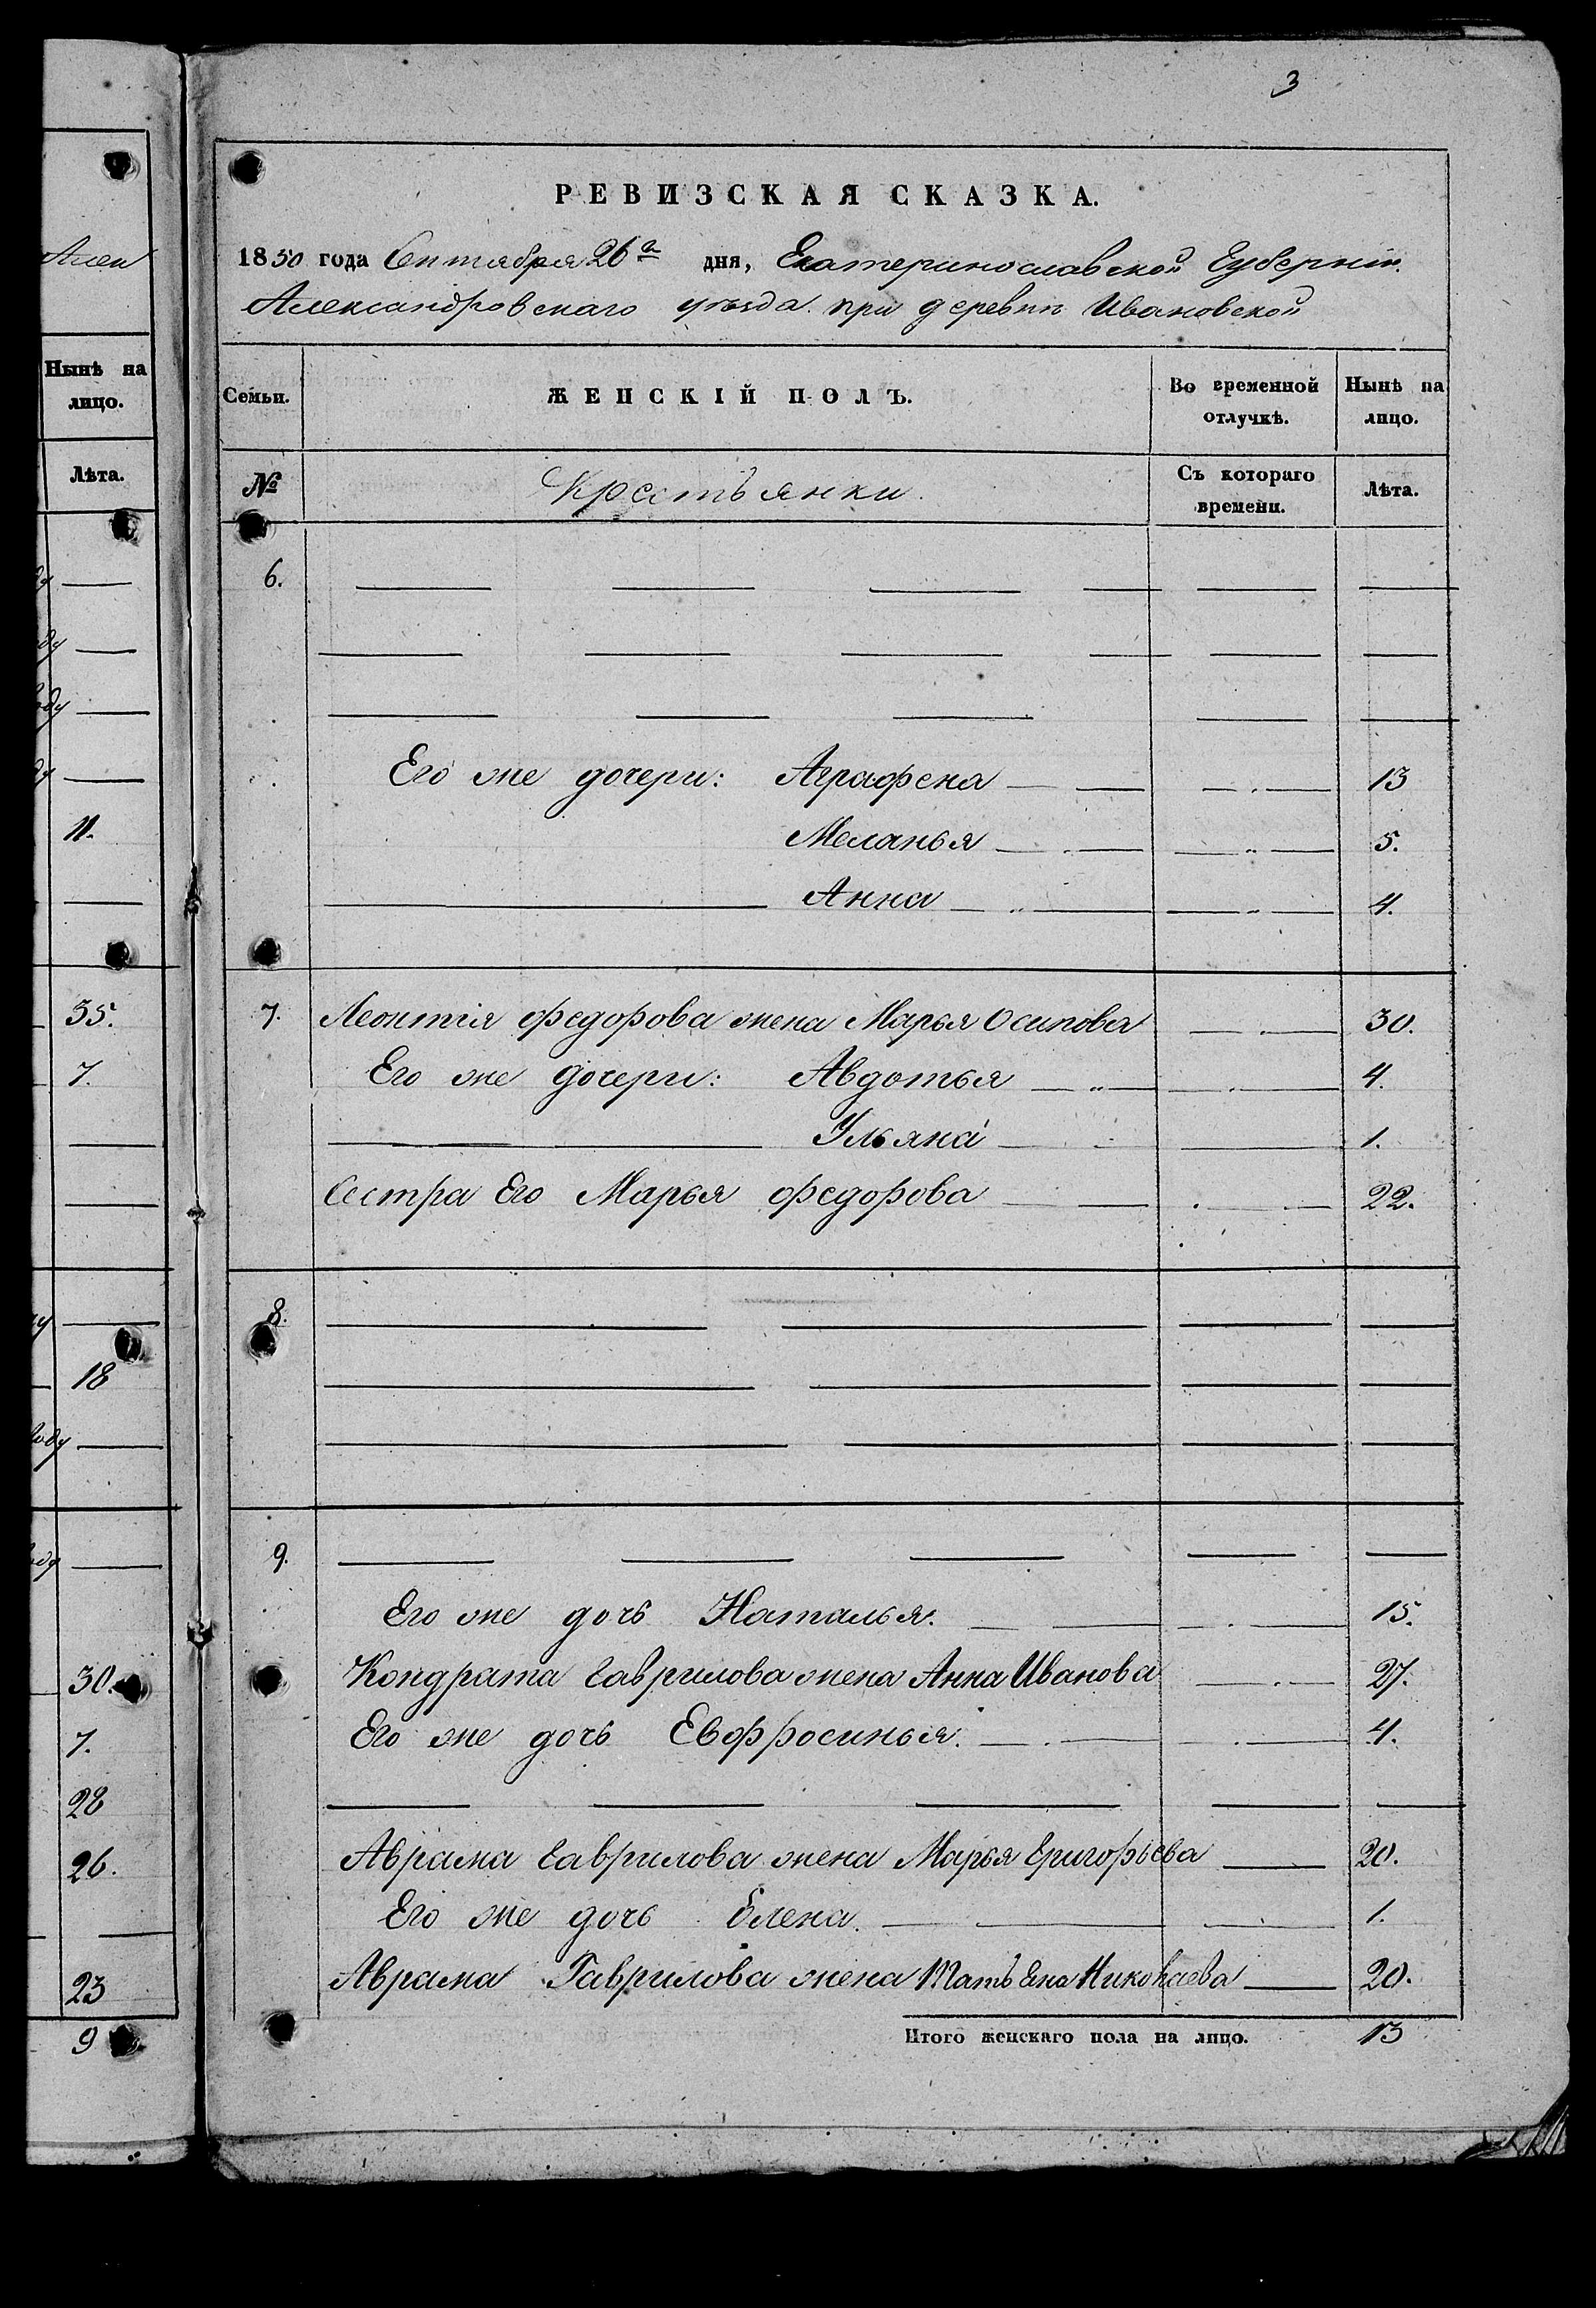 3
РЕВИЗСКАЯ СКАЗКА.
1850 года Сентября 26го дня, Екатеринославской Губерніи
Александровскаго уѣзда при деревнѣ Ивановской
Семьи. ЖЕНСКІЙ ПОЛЪ. Во временной отлучкѣ. Нынѣ на лицо.
№ Крестьянки. Съ котораго времени. Лѣта.
6.
Его же дочери: Аграфена 13
Меланья 5.
Анна 4.
7. Леонтія Федорова жена Марья Осипова 30.
Его же дочери: Авдотья 4.
Ульяна 1.
Сестра Его Марья Федорова 22.
8.
9.
Его же дочь Наталья. 15.
Кондрата Гаврилова жена Анна Иванова 27.
Его же дочь Евфросинья. 4.
Аврама Гаврилова жена Марья Григорьева 20.
Его же дочь Елена. 1.
Аврама Гаврилова жена Татьяна Николаева 20.
Итого женскаго пола на лицо. 13
Алек
Нынѣ на
лицо.
Лѣта.
11.
35.
7.
18
30.
7.
28
26.
23
9